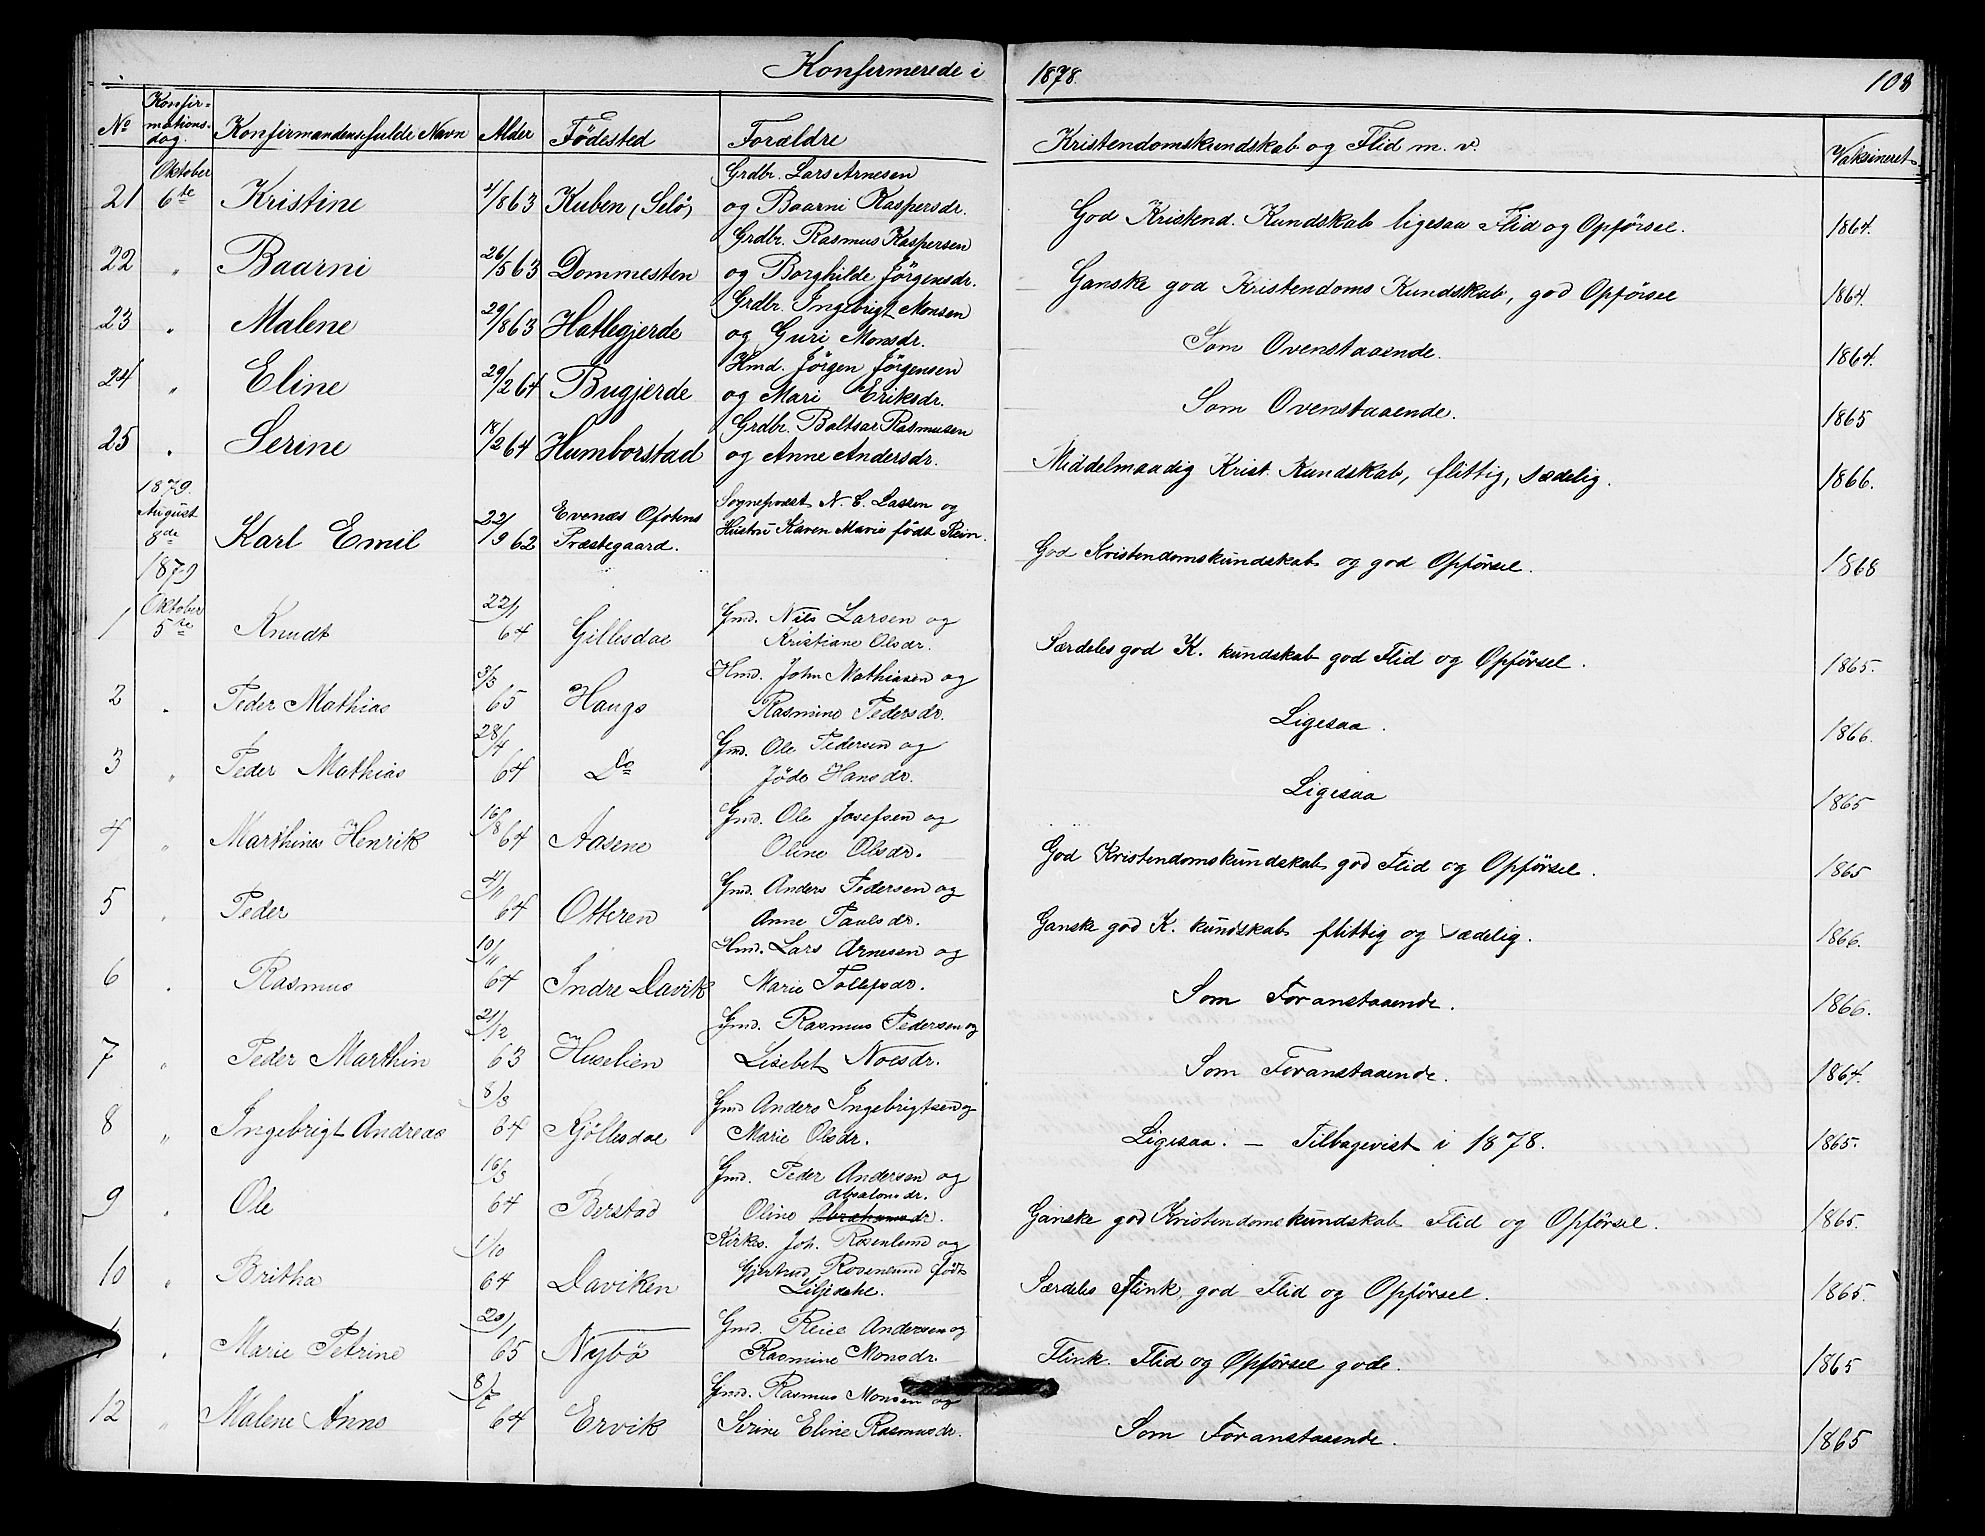 Konfirmerede i 1878. 108
No Konfirmationsdag. Konfirmandens fulde Navn Alder Födested Forældre Kristendomskundskab og Flid m. v. Vaksineret
Oktober Grdbr. Lars Arnesen
21 6te Kristine 4/8 63 Kuben (Selö) og Baarni Kaspersdr. God Kristend. Kundskab ligesaa Flid og Opförsel. 1864.
Grdbr. Rasmus Kaspersen
22 " Baarni 26/5 63 Dommesten og Borghilde Jörgensdr. Ganske god Kristendoms Kundskab, god Opförsel 1864.
Grdbr. Ingebrigt Monsen
23 " Malene 29/8 63 Hatlegjerde og Guri Monsdr. Som Ovenstaaende. 1864.
Hmd. Jörgen Jörgensen
24 " Eline 29/2 64 Bugjerde og Mari Eriksdr. Som Ovenstaaende. 1865
Grdbr. Baltsar Rasmusen
25 " Serine 18/2 64 Humborstad og Anne Andersdr. Middelmaadig Krist. Kundskab, flittig, sædelig. 1866.
1879.
August Evenæs Ofotens Sogneprest N. C. Lassen og
8de Karl Emil 22/9 62 Præstegaard. Hustru Karen Marie födt Rein. God Kristendomskundskab og god Opförsel. 1868
1879
Oktober 22/1 Gmd. Nils Larsen og
1 5te Knudt 64 Gillesdal Kristiane Olsdr. Særdeles god K. kundskab god Flid og Opförsel. 1865.
3/3 Hmd. John Mathiasen og
2 " Peder Mathias 65 Hauge Rasmine Pedersdr. Ligesaa. 1866.
28/4 Gmd. Ole Pedersen og
3 " Peder Mathias 64 Do Jöde Hansdr. Ligesaa 1865
16/8 Gmd. Ole Josefsen og
4 " Marthines Henrik 64 Aasene Oline Olsdr. God Kristendomskundskab god Flid og Opförsel. 1865
4/11 Gmd. Anders Pedersen og
5 " Peder 64 Otteren Anne Paulsdr. Ganske god K. kundskab flittig og sædelig. 1866.
10/11 Hmd. Lars Arnesen og
6 " Rasmus 64 Indre Davik Marie Tollefsdr. Som Foranstaaende. 1866.
21/12 Gmd. Rasmus Pedersen og
7 " Peder Marthin 63 Huselien Lisebet Noesdr. Som Foranstaaende. 1864.
8/3 Gmd Anders Ingebrigtsen og
8 " Ingebrigt Andreas 64 Kjöllesdal Marie Olsdr. Ligesaa. – Tilbagevist i 1878. 1865.
16/3 Gmd. Peder Andersen og
Absalonsdr.
9 " Ole 64 Berstad Oline Abrahamsdr. Ganske god Kristendomskundskab Flid og Opförsel. 1865.
1/10 Kirkes. Joh. Rosenlund og
10 " Britha 64 Daviken Gjertrud Rosenlund födt Særdeles flink, god Flid og Opförsel. 1865.
Liljedahl.
20/1 Gmd. Reiel Andersen og
" Marie Petrine 65 Nybö Rasmine Monsdr. Flink. Flid og Opförsel gode. 1865
8/7 Gmd. Rasmus Monsen og
12 " Malene Anne 64 Ervik Serine Eline Rasmusdr. Som Foranstaaende. 1865